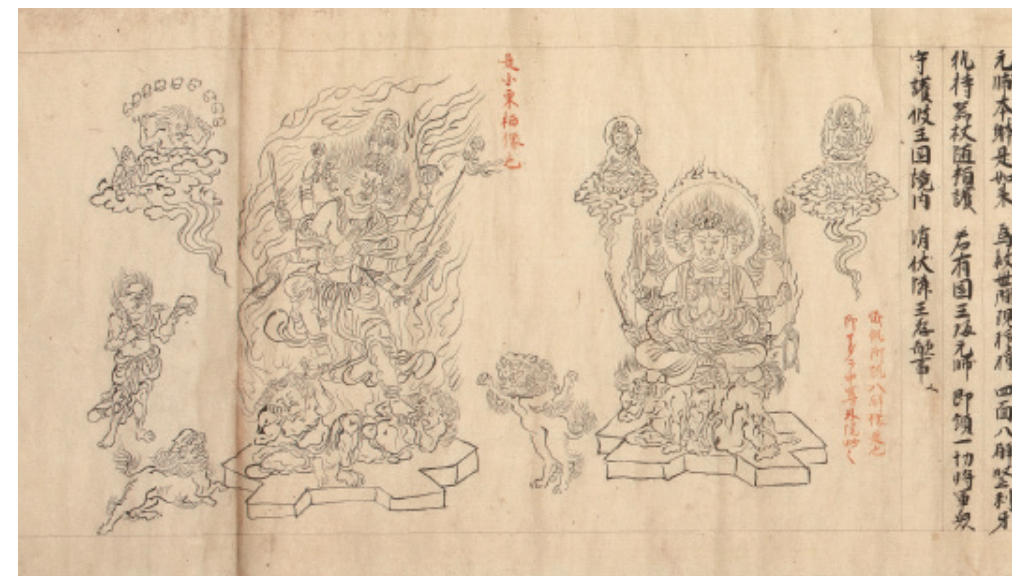 元帥本躰是如来 為救世間現種種 四面八臂 利牙
持器杖随相護 若有国王 元帥 即領一切将軍衆
守護彼王国境内 消伏隣王
儀軌所説八臂像是也
是小栗栖像也